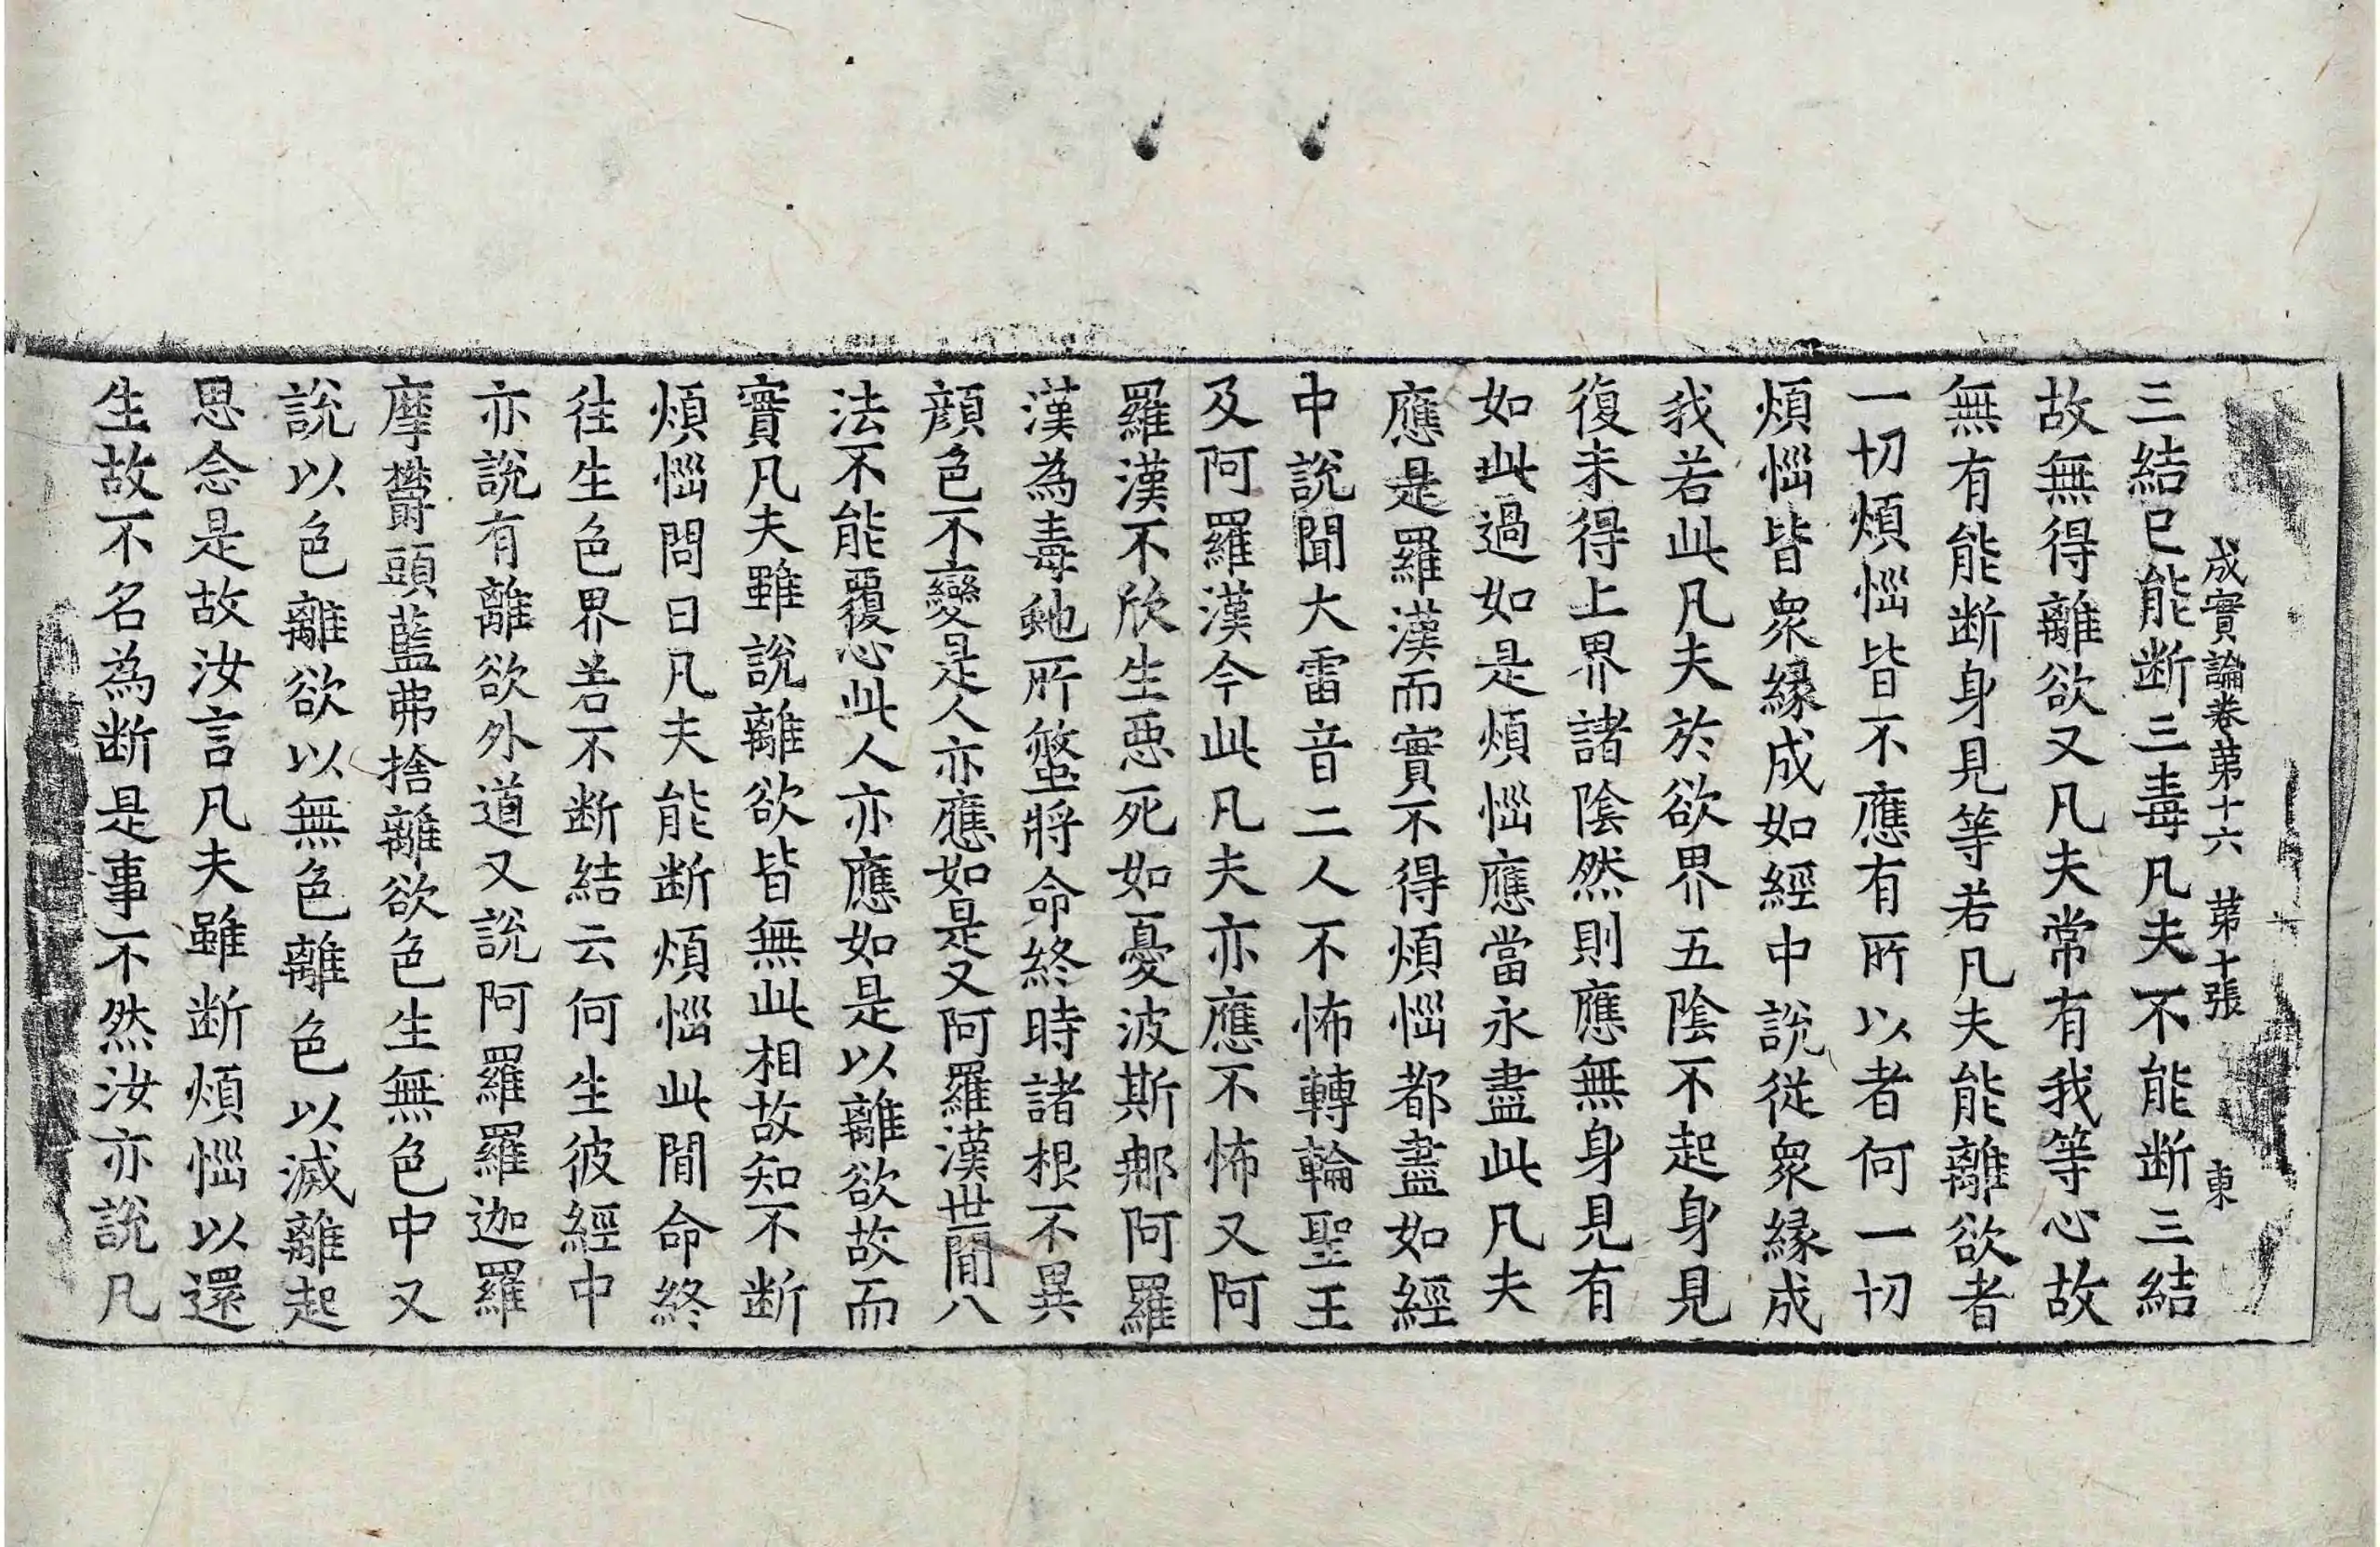 成實論卷苐十六 苐十張 東
三結已能断三毒凡夫不能断三結
故無得離欲又凡夫常有我等心故
無有能断身見等若凡夫能離欲者
一切煩惱皆不應有所以者何一切
煩惱皆衆縁成如經中說從衆縁成
我若此凡夫於欲界五陰不起身見
復未得上界諸陰然則應無身見有
如此過如是煩惱應當永盡此凡夫
應是羅漢而實不得煩惱都盡如經
中說聞大雷音二人不怖轉輪聖王
及阿羅漢今此凡夫亦應不怖又阿
羅漢不欣生惡死如憂波斯那阿羅
漢為毒虵所螫將命終時諸根不異
顔色不變是人亦應如是又阿羅漢世間八
法不能覆心此人亦應如是以離欲故而
實凡夫雖說離欲皆無此相故知不断
煩惱問曰凡夫能断煩惱此間命終
往生色界若不断結云何生彼經中
亦說有離欲外道又說阿羅羅迦羅
摩欝頭藍弗捨離欲色生無色中又
說以色離欲以無色離色以滅離起
思念是故汝言凡夫雖断煩惱以還
生故不名為断是事不然汝亦說凡